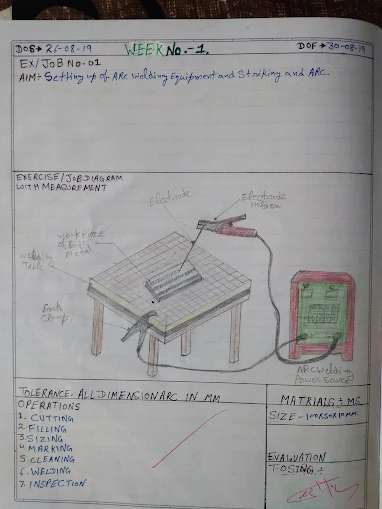 DOS→ 26-08-19
WEEK No.-1.
DOF→30-08-19
EX/JOB NO-01
AIM÷ Setting up of ARC Welding Equipment and Striking and ARC.
EXERCISE/JOB DIAGRAM
WITH MEASUREMENT
Electrode
Electrode
Holder
Workpiece
of
Metal
Welding
Table
Earth
Clamp
ARC Welding
Power Source
TOLERANCE- ALL DIMENSION ARC IN MM
OPERATIONS
1. CUTTING
2. FILLING
3. SIZING
4. MARKING
5. CLEANING
6. WELDING
7. INSPECTION
MATRIALS÷ MS
SIZE- 100X50X10MM
EVALUATION